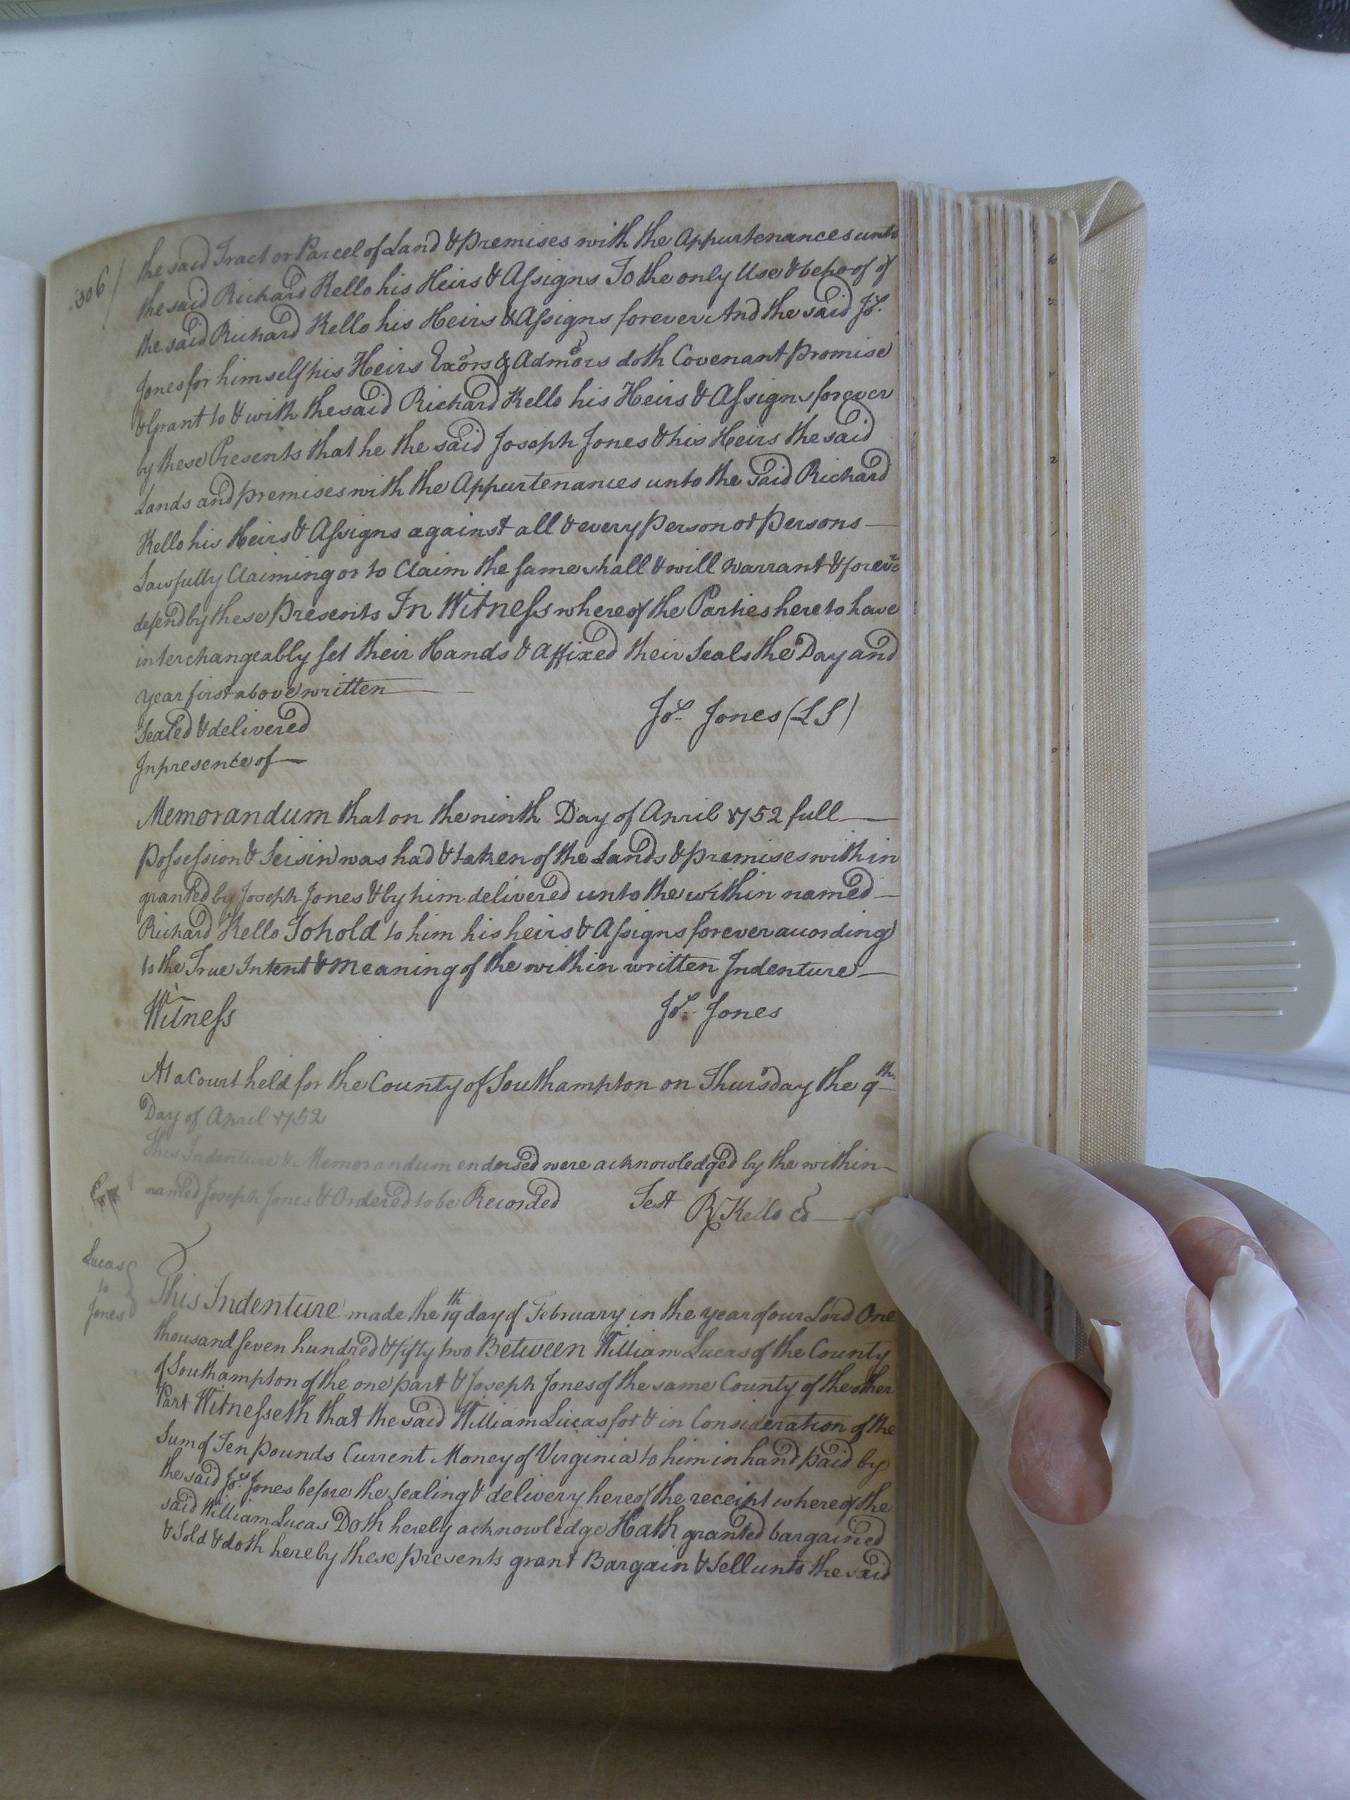 306
the said Tract or Parcel of Land & premises with the Appurtenances unto
the said Richard Kello his Heirs & Assigns To the only Use & behoof of
the said Richard Kello his Heirs & Assigns forever And the said Jos.
Jones for himself his Heirs Exors & Admors doth Covenant promise
& Grant to & with the said Richard Kello his Heirs & Assigns forever
by these Presents that he the said Joseph Jones & his Heirs the said
Lands and premises with the Appurtenances unto the Said Richard
Kello his Heirs & Assigns against all & every person or persons
Lawfully Claiming or to Claim the same shall & will warrant & forevr
defend by these presents In Witness whereof the Parties hereto have
interchangeably set their Hands & Affixed their Seals the Day and
Year first above written
Sealed & delivered
Jos. Jones (LS)
In presence of
Memorandum that on the ninth Day of April 1752 full
possession & Seisin was had & taken of the Lands & premises within
granted by Joseph Jones & by him delivered unto the within named
Richard Kello To hold to him his heirs & Assigns forever according
to the True Intent & Meaning of the within written Indenture
Witness
Jos. Jones
At a Court held for the County of Southampton on Thursday the 9th
Day of April 1752
This Indenture & Memorandum endorsed were acknowledged by the within
named Joseph Jones & Ordered to be Recorded
Test R Kello Co
Lucas
to
Jones
This Indenture made the 19th day of February in the year of our Lord One
thousand seven hundred & fifty two Between William Lucas of the County
of Southampton of the one part & Joseph Jones of the same County of the other
Part Witnesseth that the said William Lucas for & in Consideration of the
Sum of Ten pounds Current Money of Virginia to him in hand paid by
the said Jos. Jones before the sealing & delivery hereof the receipt whereof the
said William Lucas Doth hereby acknowledge Hath granted bargained
& Sold & doth hereby these presents grant Bargain & Sell unto the said